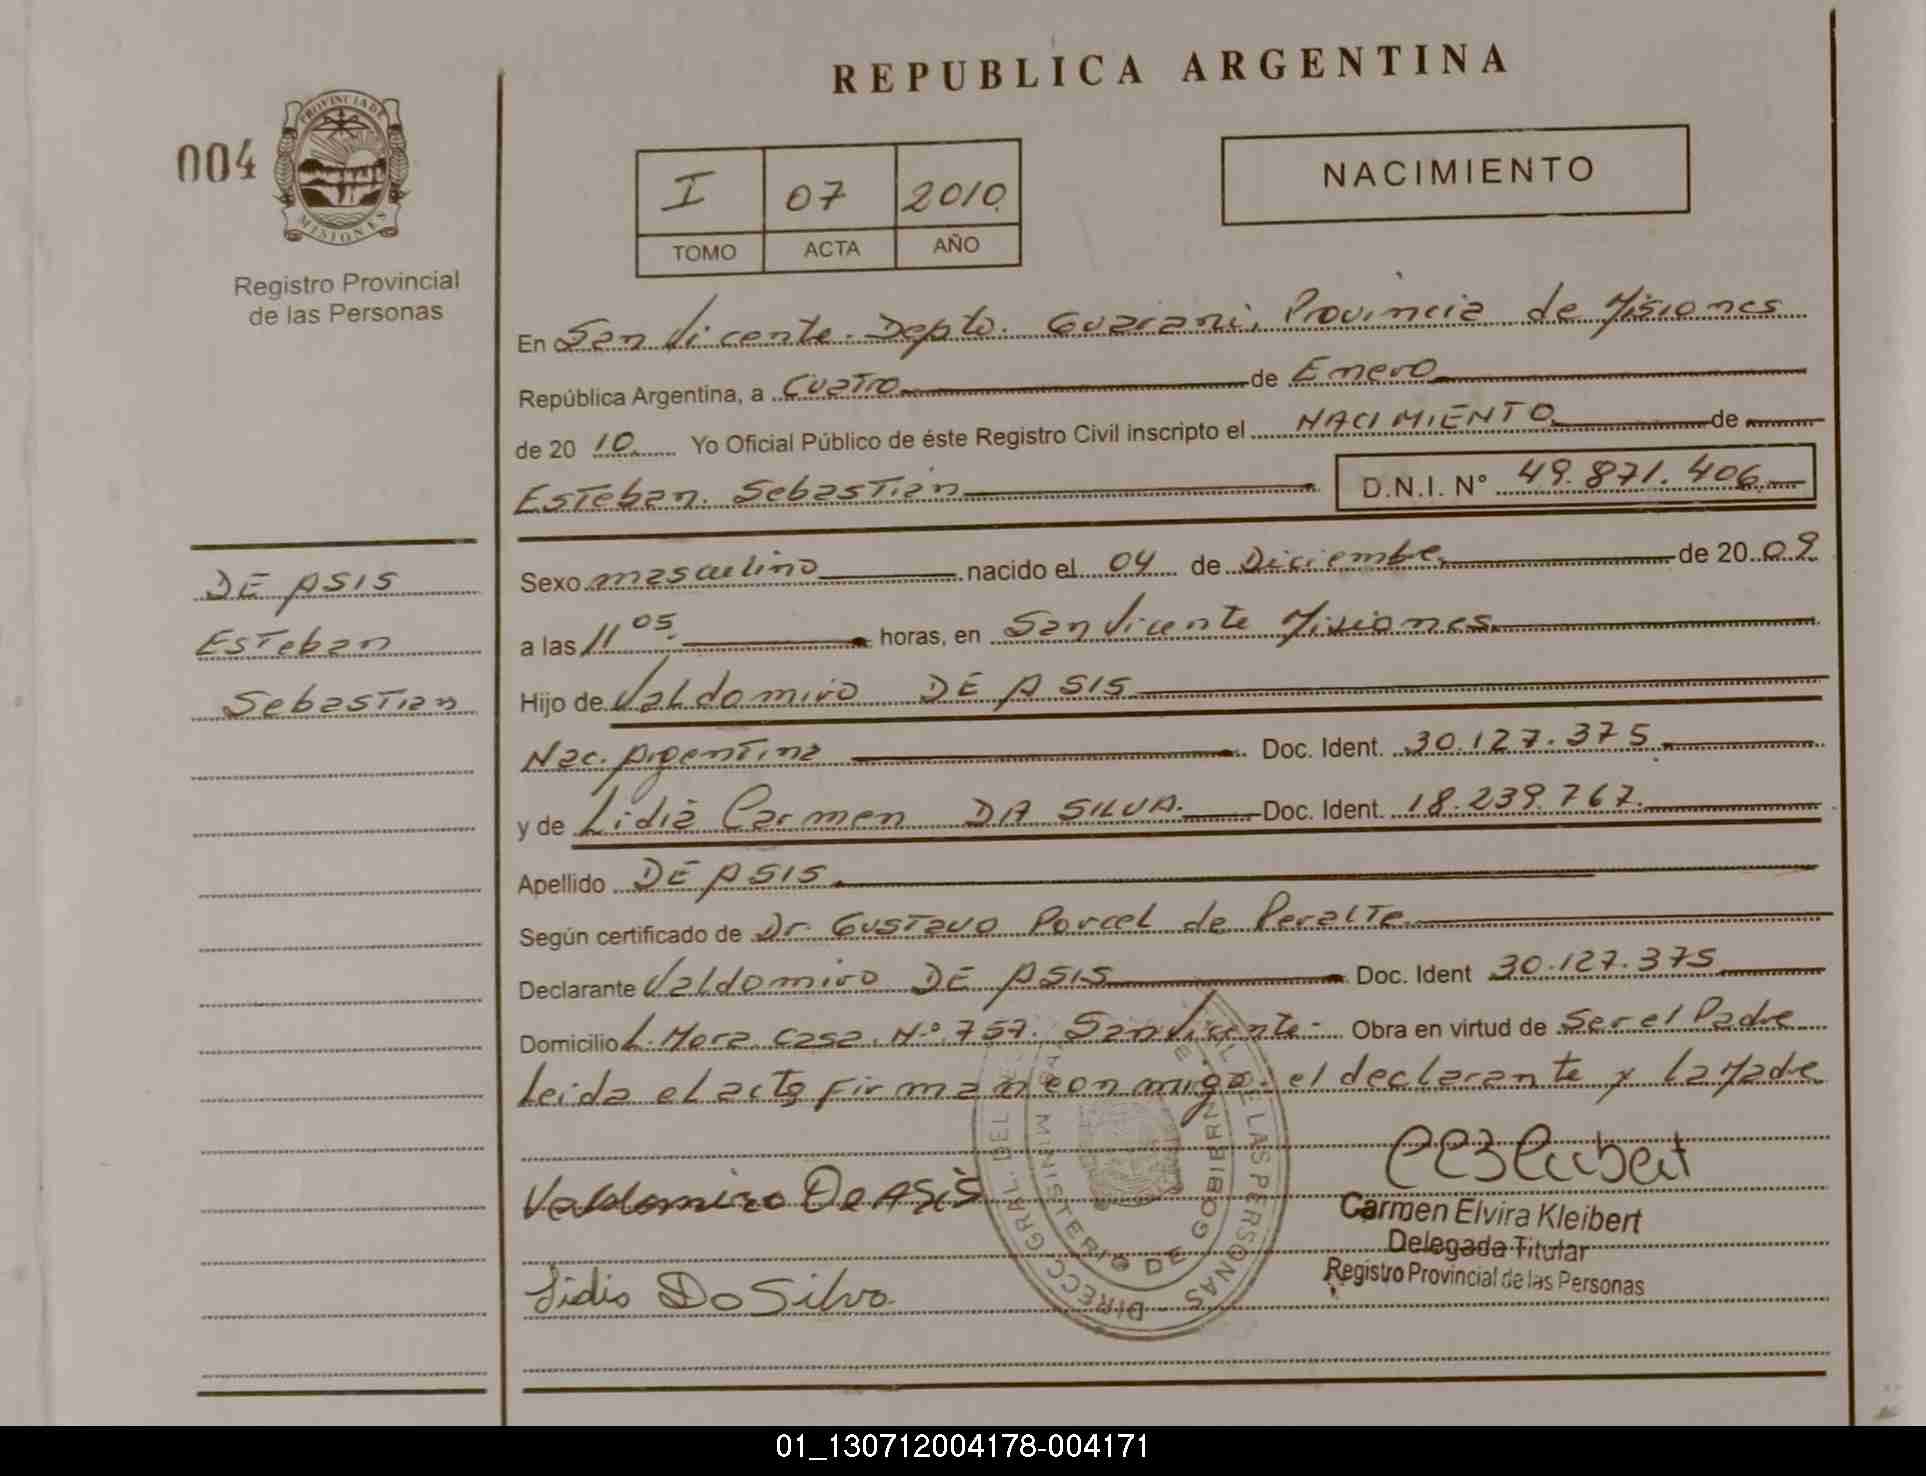 REPUBLICA ARGENTINA
004
PROVINCIA DE
MISIONES
Registro Provincial
de las Personas
I 07 2010
TOMO ACTA AÑO
NACIMIENTO
En San Vicente. Depto. Guarani, Provincia de Misiones
República Argentina, a Cuatro de Enero
de 20 10 Yo Oficial Público de éste Registro Civil inscripto el NACIMIENTO de
Esteban. Sebastian D.N.I. N° 49.871.406
DE ASIS
Esteban
Sebastian
Sexo masculino nacido el 04 de Diciembre de 20 09
a las 11 05 horas, en San Vicente Misiones
Hijo de Valdomiro DE ASIS
Nac. Argentina Doc. Ident. 30.127.375
y de Lidia Carmen DA SILVA Doc. Ident. 18.239.767
Apellido DE ASIS
Según certificado de Dr. Gustavo Porcel de Peralte
Declarante Valdomiro DE ASIS Doc. Ident 30.127.375
Domicilio L. Mora casa. N° 757. San Vicente Obra en virtud de Ser el Padre
Leida el acta Firman conmigo el declarante y la Madre
DIRECC. GRAL. DEL LAS PERSONAS
MINISTERIO DE GOBIERNO
Valdomiro De ASis
Lidia Da Silva
Carmen Elvira Kleibert
Delegada Titular
Registro Provincial de las Personas
01_130712004178-004171